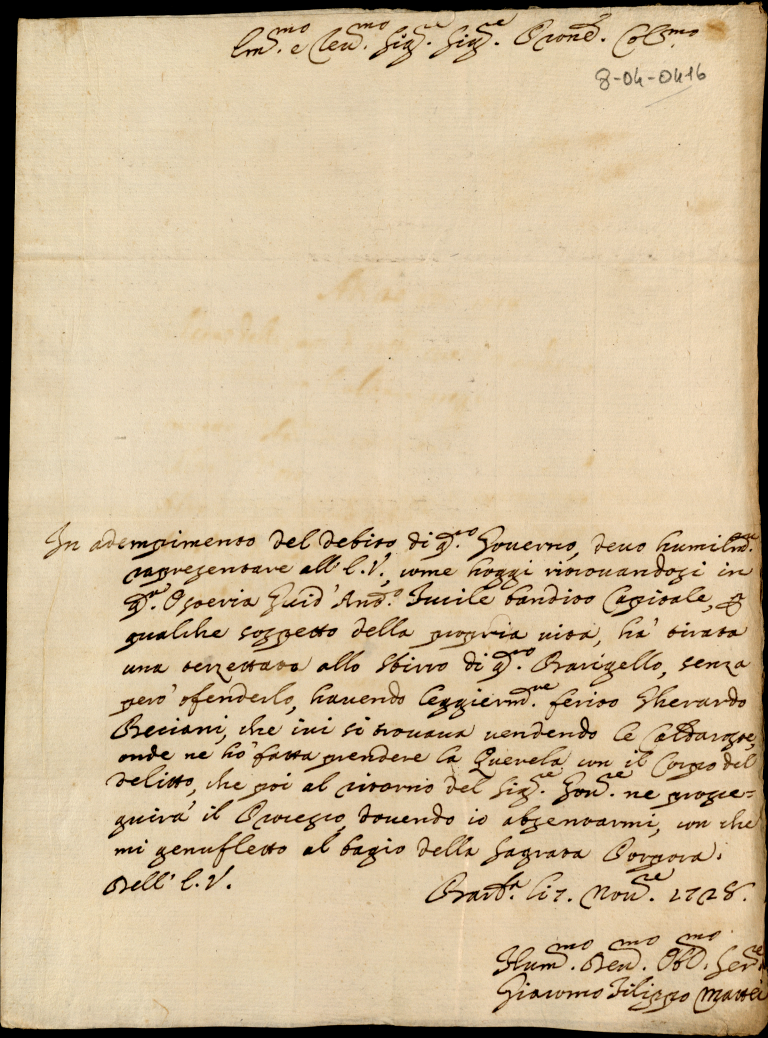 Em.mo e Reu.mo Sig.re Sig.re Prone Col.mo
8-04-0416
In adempimento del debito di q.to Gouerno, deuo humilm.te
rapresentare all' E.V., come hoggi ritrouandosi in
q.ta Osteria Guid' Ant.o Fucile bandito Capitale, p
qualche sospetto della propria uita, hà tirata
una terzettata allo sbirro di q.to Barigello, senza
però ofenderlo, hauendo leggierm.te ferito Gherardo
Beciani, che iui si trouaua uendendo le Caldaroste,
onde ne hò fatta prendere la Querela con il Corpo del
delitto, che poi al ritorno del Sig.re Gou.re ne prose=
guirà il Processo, douendo io absentarmi, con che
mi genufletto al bagio della Sagrata Porpora.
Dell' E.V.
li 7. Nou.re 1728.
Hum.mo Deu.mo Obl.mo Ser.re
Giacomo Filippo Mattei